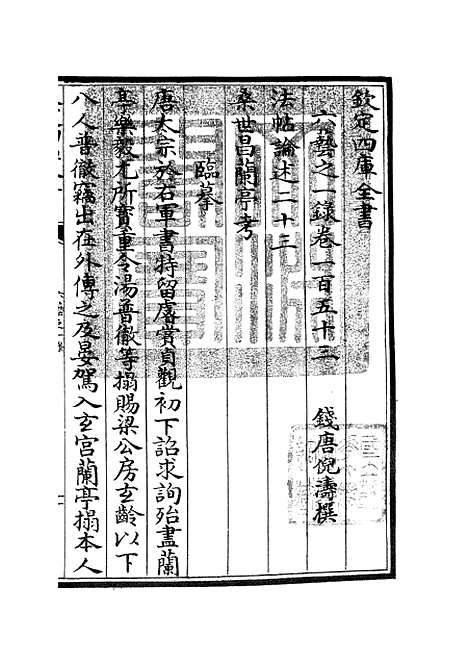 欽定四庫全書
六藝之一録卷一百五十三
錢唐倪濤撰
法帖論述二十三
桑世昌蘭亭考
臨摹
唐太宗於右軍書特留睿賞貞觀初下詔求詢殆盡蘭
亭樂毅尤所寳重令湯普徹等搨賜梁公房玄齡以下
八人普徹竊出在外傳之及晏駕入玄宫蘭亭搨本人